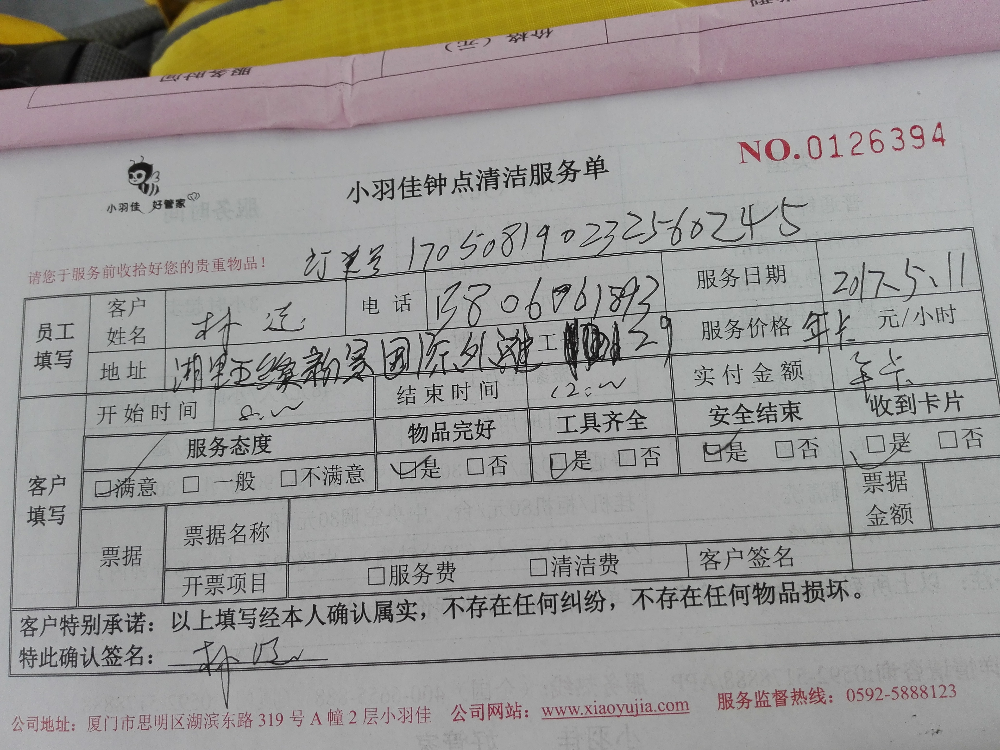 服务时间
价格（元）
NO.0126394
小羽佳 好管家
小羽佳钟点清洁服务单
请您于服务前收拾好您的贵重物品！
订单号 170508190232560245
员工填写 客户姓名 林 电话 服务日期 2017.5.11
地址 湖里五缘新景国际外滩 29 服务价格 年卡 元/小时
开始时间 8:00 结束时间 12:00 实付金额 年卡
客户填写 服务态度 物品完好 工具齐全 安全结束 收到卡片
□满意 □一般 □不满意 □是 □否 □是 □否 □是 □否 □是 □否
票据 票据名称 票据金额
开票项目 □服务费 □清洁费 客户签名
客户特别承诺：以上填写经本人确认属实，不存在任何纠纷，不存在任何物品损坏。
特此确认签名：林
公司地址：厦门市思明区湖滨东路 319 号 A 幢 2 层小羽佳 公司网站：www.xiaoyujia.com 服务监督热线：0592-5888123